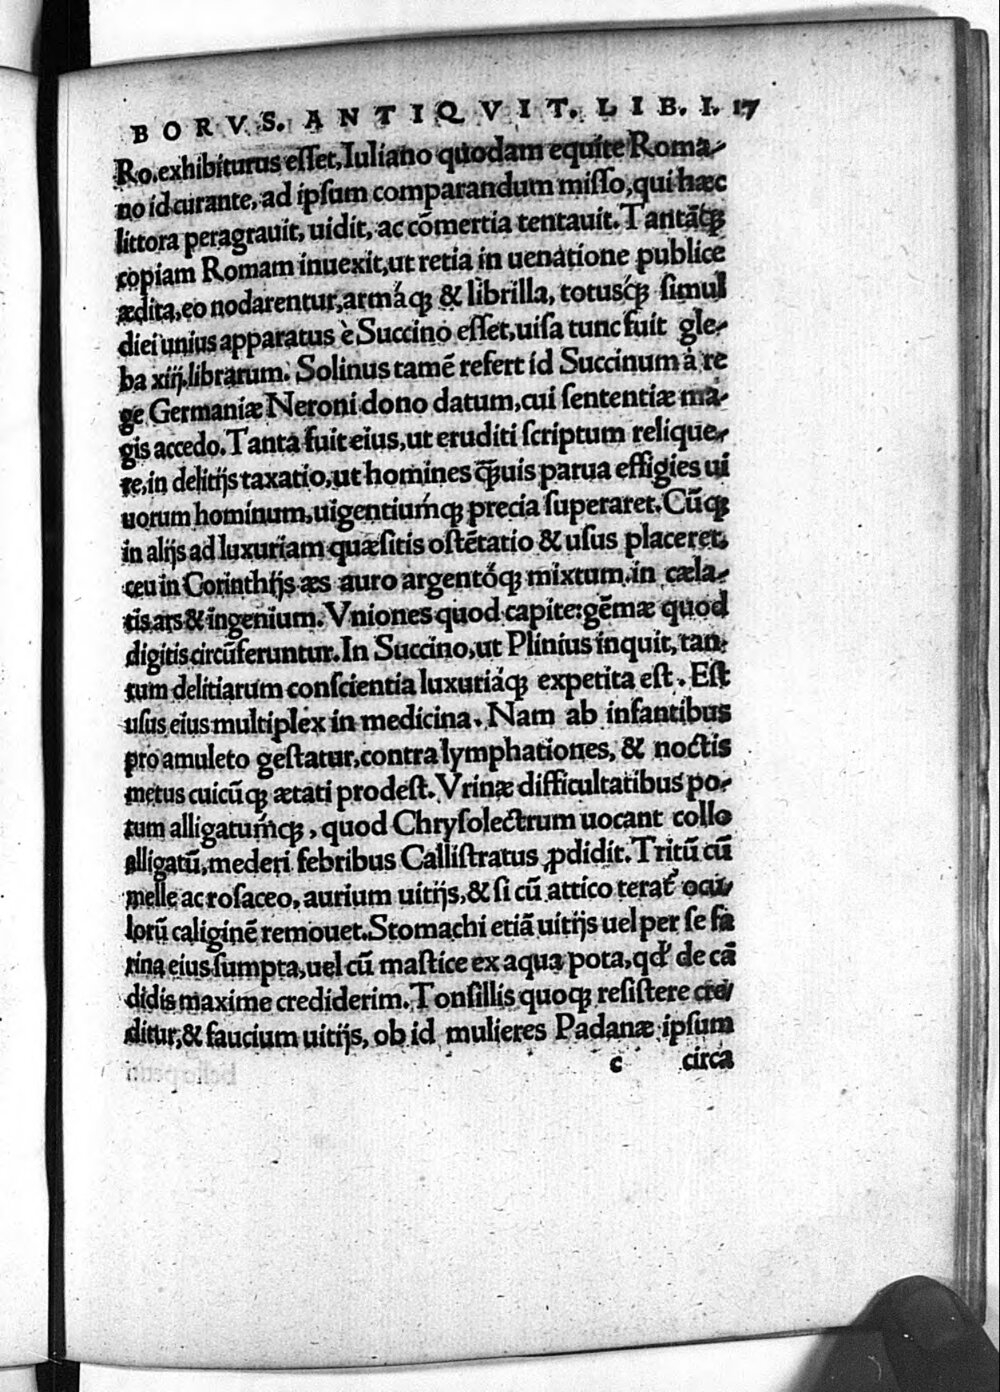 BORVS. ANTIQVIT. LIB. I. 17
Ro. exhibiturus eſſet, Iuliano quodam equite Roma-
no id curante, ad ipſum comparandum miſſo, qui hæc
littora peragrauit, uidit, ac cõmertia tentauit. Tantãq;
copiam Romam inuexit, ut retia in uenatione publice
ædita, eo nodarentur, armáq; & librilla, totusq́; ſimul
diei unius apparatus è Succino eſſet, uiſa tunc fuit gle-
ba xiij. librarum. Solinus tamẽ refert id Succinum à re
ge Germaniæ Neroni dono datum, cui ſententiæ ma-
gis accedo. Tanta fuit eius, ut eruditi ſcriptum relique-
re, in delitijs taxatio, ut homines q̃uis parua effigies ui
uorum hominum, uigentiuḿq; precia ſuperaret. Cũq;
in alijs ad luxuriam quæſitis oſtẽtatio & uſus placeret,
ceu in Corinthijs æs auro argentóq; mixtum. in cæla-
tis ars & ingenium. Vniones quod capite: gẽmæ quod
digitis circũferuntur. In Succino, ut Plinius inquit, tan-
tum delitiarum conſcientia luxuriáq; expetita eſt. Eſt
uſus eius multiplex in medicina. Nam ab infantibus
pro amuleto geſtatur, contra lymphationes, & noctis
metus cuicũq; ætati prodeſt. Vrinæ difficultatibus po-
tum alligatuḿq;, quod Chryſolectrum uocant collo
alligatũ, mederi febribus Calliſtratus ꝓdidit. Tritũ cũ
melle ac roſaceo, aurium uitijs, & ſi cũ attico terat᷑ ocu-
lorũ caliginẽ remouet. Stomachi etiã uitijs uel per ſe fa
rina eius ſumpta, uel cũ maſtice ex aqua pota, qđ de cã
didis maxime crediderim. Tonſillis quoq; reſiſtere cre-
ditur, & faucium uitijs, ob id mulieres Padanæ ipſum
c circa